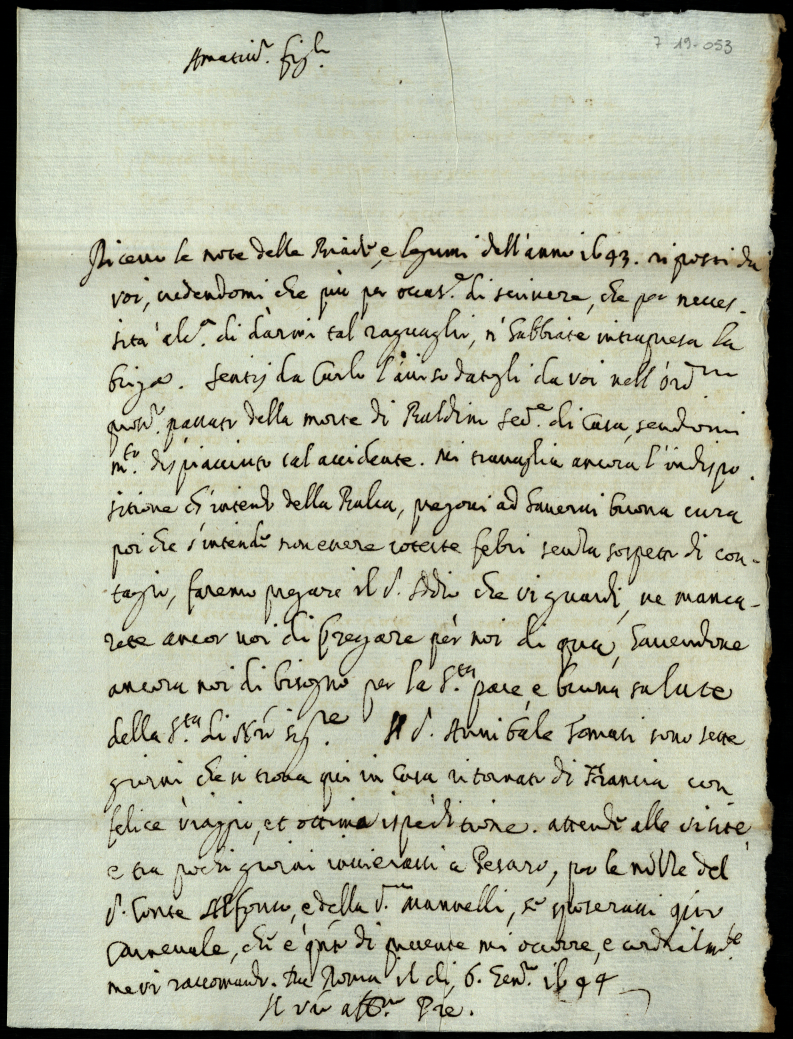 7-19-053
Amatiss.ᵃ figl.ᵃ
Ricevo le note delle Biade, e legumi dell'anno 1643. riposti da
voi, vedendomi che più per occas.ᵉ di scrivere, che per neces-
sità alc.ᵃ di darmi tal raguaglio, n'habbiate intrapresa la
briga. Sentij da Carlo l'aviso datogli da voi nell'ord.ʳⁱᵒ
pross.º passato della morte di Baldim sed.ᵉ di Casa, sendomi
m.ᵗᵒ dispiaciuto tal accidente. Mi travaglia ancora l'indispo-
sitione ch'intendo della Balia, pregovi ad haverni buona cura
poi che s'intende non essere coteste febri senza sospetto di con-
tagio, faremo pregare il S. Iddio che vi guardi, ne manca-
rete ancor voi di pregare per noi di qua, havendone
ancora noi di bisogno per la S.ᵗᵃ pace, e buona salute
della S.ᵗᵃ di N'ro Sig.ʳᵉ Il S. Annibale Tomasi sono sette
giorni che si trova qui in Casa ritornato di Francia con
felice viaggio, et ottima ispeditione. attende alle visite
e tra pochi giorni invierassi a Pesaro, per le nozze del
S. Conte Alfonso, e della S.ʳᵃ Mannelli, se sposerassi q'sto
Carnevale, ch'è q'nto di presente mi occorre, e cordialm.ᵗᵉ
me vi raccomando. Da Roma il dì, 6. Gen.º 1644
Il v'ro aff.ᵐᵒ P're.